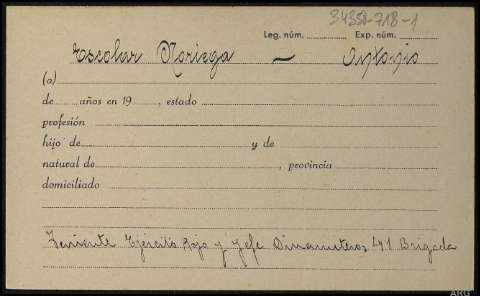 34350-718-1
Leg. núm. Exp. núm.
Escobar Noriega — Antonio
(a)
de años en 19 , estado
profesión
hijo de y de
natural de , provincia
domiciliado
Teniente Ejército Rojo y Jefe Dinamiteros 41 Brigada
ARG